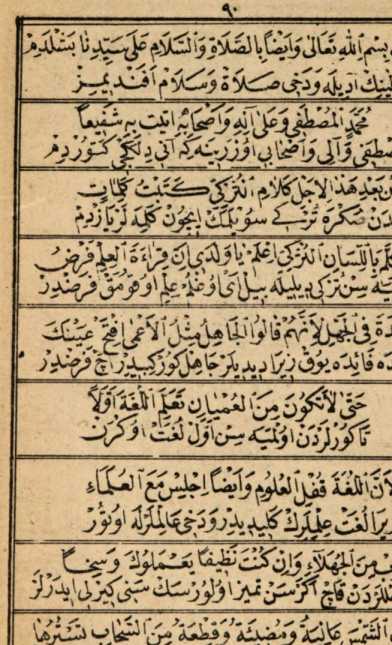 ٩٠
بسم الله تعالى وايضا بالصلاة والسلام على سيدنا بشلدم
اديله ودخى صلاة وسلام افنديمز
محمد المصطفى وعلى آله واصحابه اتيت به شفيعا
وآلى واصحابى اوزرينه كه آنى دلكجى كتوردم
بعد هذا لاجل كلام التركى كتبت كلمات
صكره ترك سويلمك ايچون كلمه لر يازدم
باللسان التركى اعلم يا ولدى ان قراءة العلم فرض
سن تركى ديليله بيل اى اوغل علم اوقومق فرضدر
فى الجهل لانهم قالوا الجاهل مثل الاعمى افتح عينك
فائده يوق زيرا ديديلر جاهل كور كبيدر آچ
حتى لا تكون من العميان تعلم اللغة اولا
تا كورلردن اولميه سن اول لغت اوكرن
لان اللغة قفل العلوم وايضا اجلس مع العلماء
زيرا لغت علملرك كليديدر ودخى عالملرله اوتور
من الجهلاء وان كنت نظيفا يعملوك وسخا
قاچ اكر سن تميز اولورسك سنى كيرلى ايدرلر
الشمس عالية ومضيئة وقطعة من السحاب تسترها